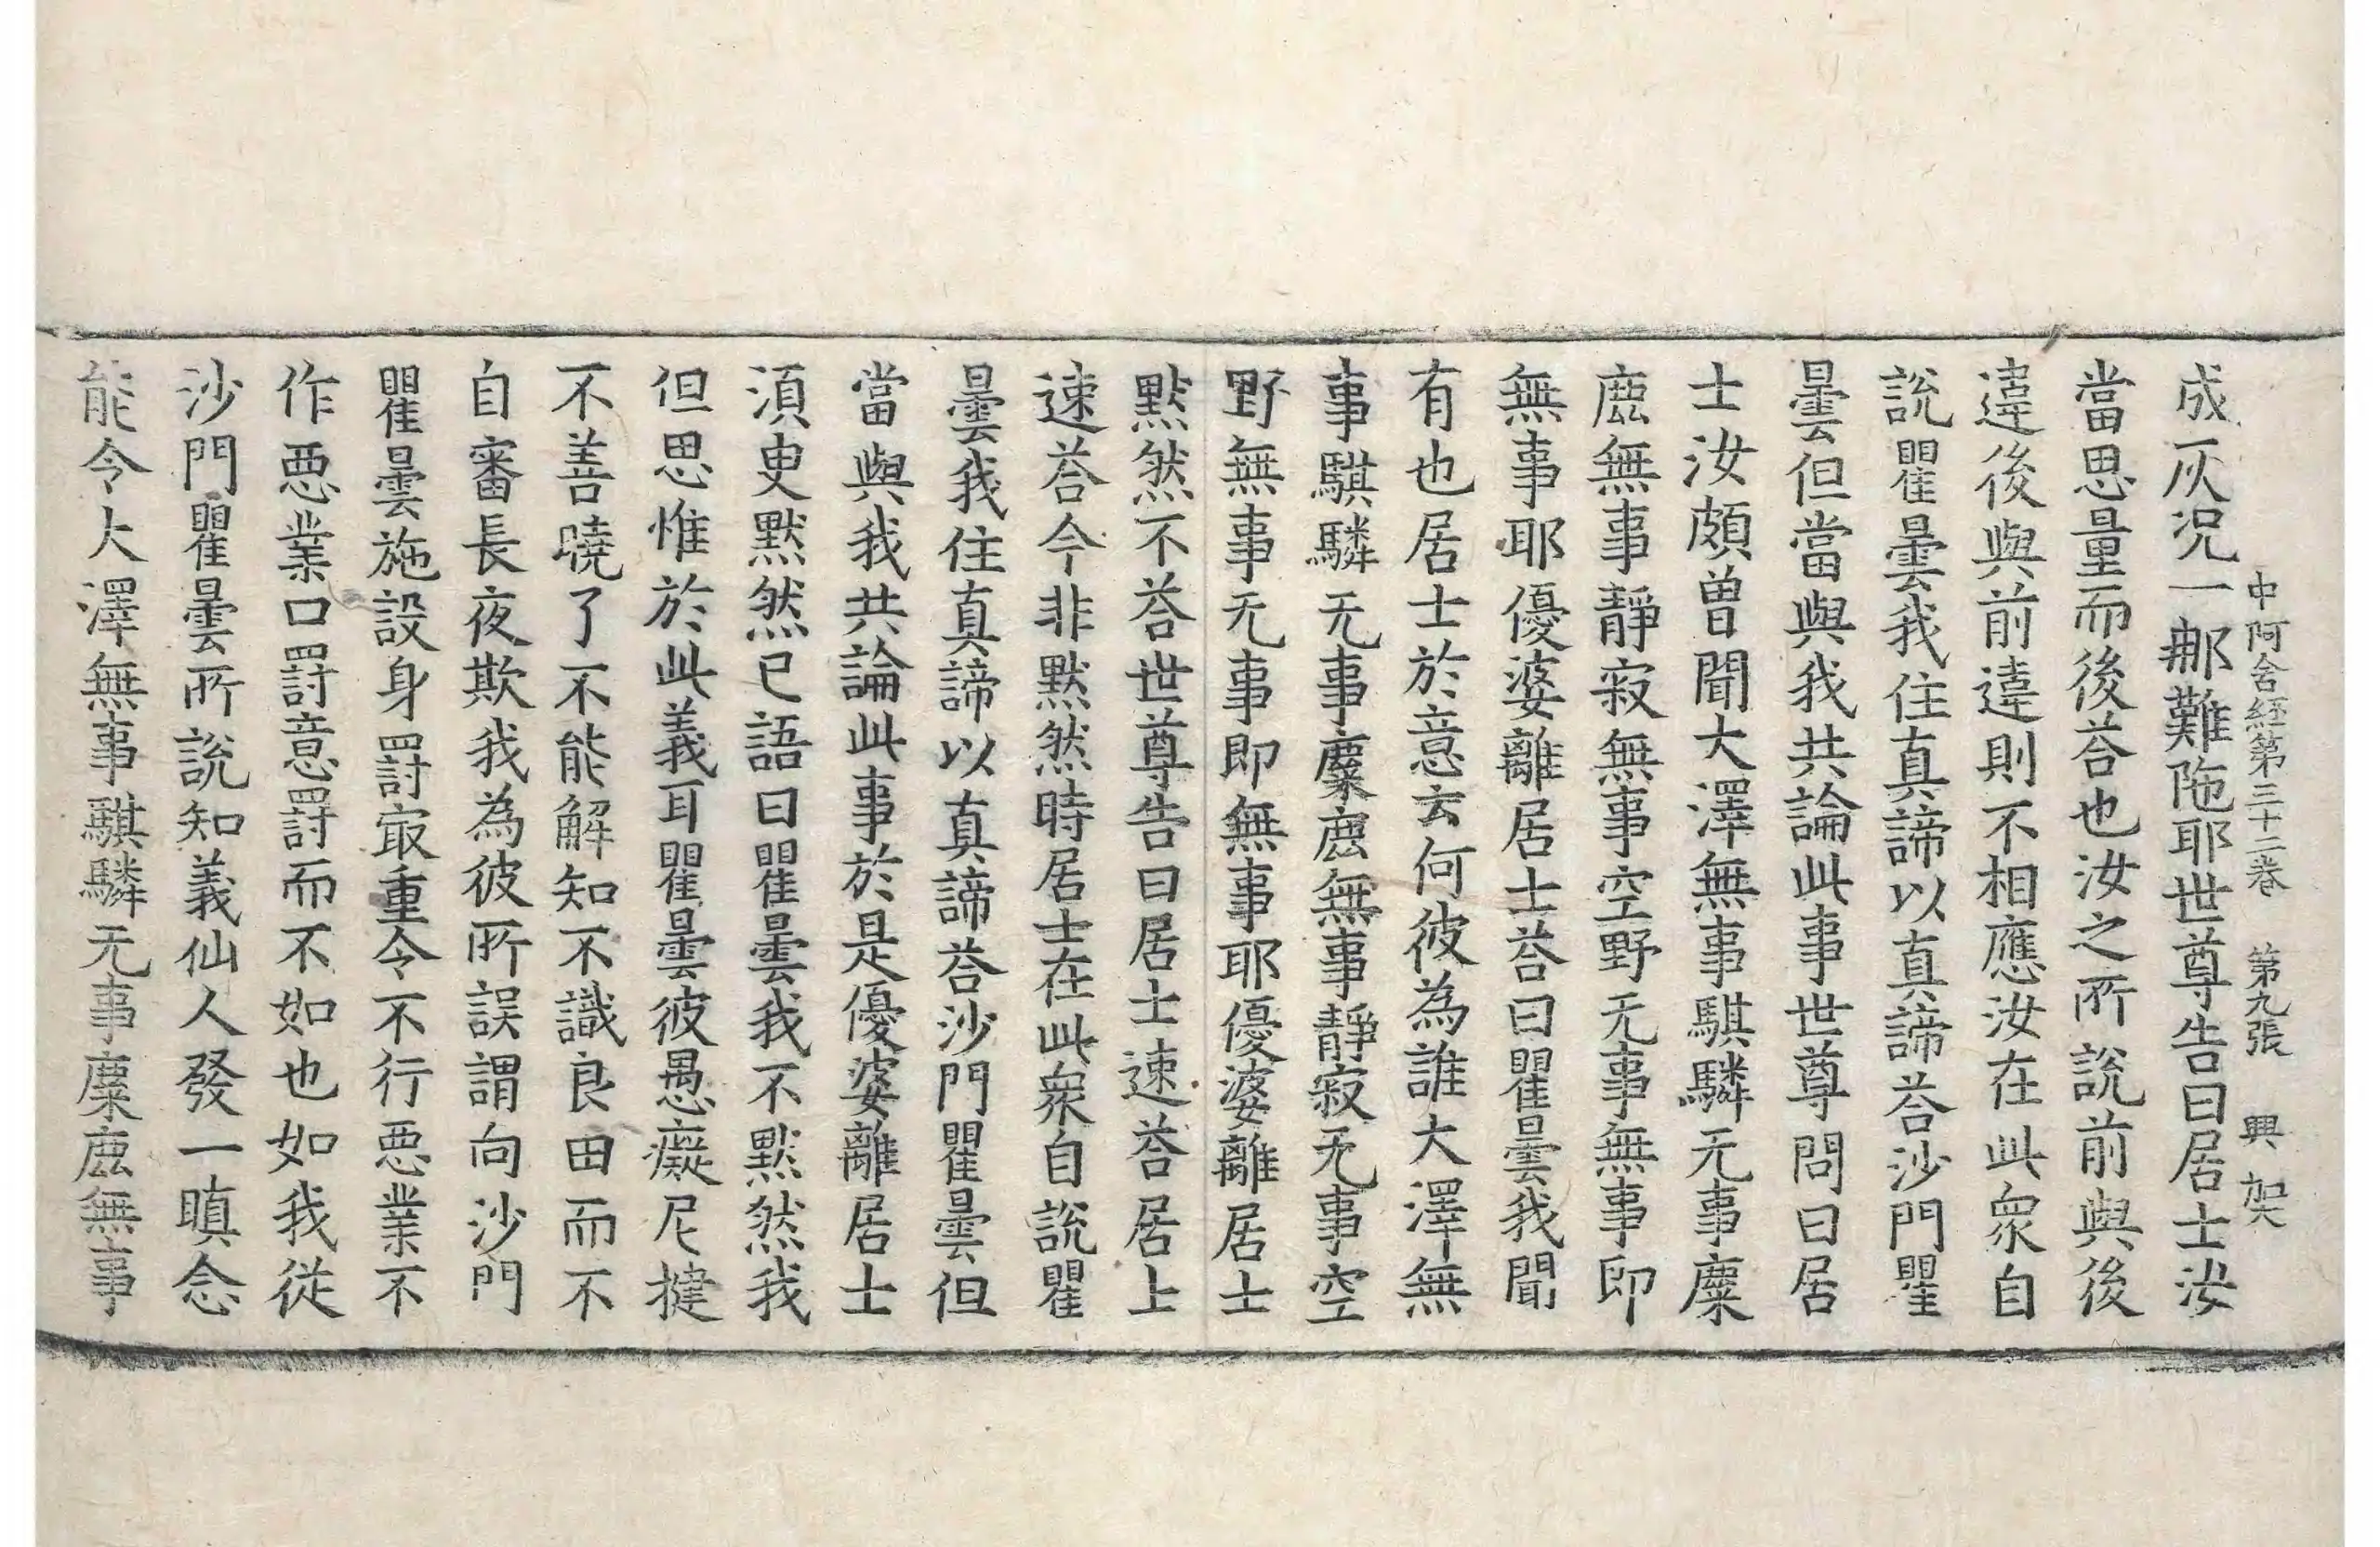 中阿含経第三十二卷　第九張　興　㚙
成灰況一那難陁耶世尊告曰居士汝
當思量而後荅也汝之所說前與後
違後與前違則不相應汝在此眾自
說瞿曇我住真諦以真諦荅沙門瞿
曇但當與我共論此事世尊問曰居
士汝頗曾聞大澤無事騏驎无事麋
鹿無事靜寂無事空野无事無事即
無事耶優婆離居士荅曰瞿曇我聞
有也居士於意云何彼為誰大澤無
事騏驎无事麋鹿無事靜寂无事空
野無事无事即無事耶優婆離居士
默然不荅世尊告曰居士速荅居上
速荅今非默然時居士在此眾自說瞿
曇我住真諦以真諦荅沙門瞿曇但
當與我共論此事於是優婆離居士
湏臾默然已語曰瞿曇我不默然我
但思惟於此義耳瞿曇彼愚癡尼揵
不善曉了不能解知不識良田而不
自審長夜欺我為彼所誤謂向沙門
瞿曇施設身罰㝡重令不行惡業不
作惡業口罰意罰而不如也如我從
沙門瞿曇所說知義仙人發一瞋念
能令大澤無事騏驎无事麋鹿無事